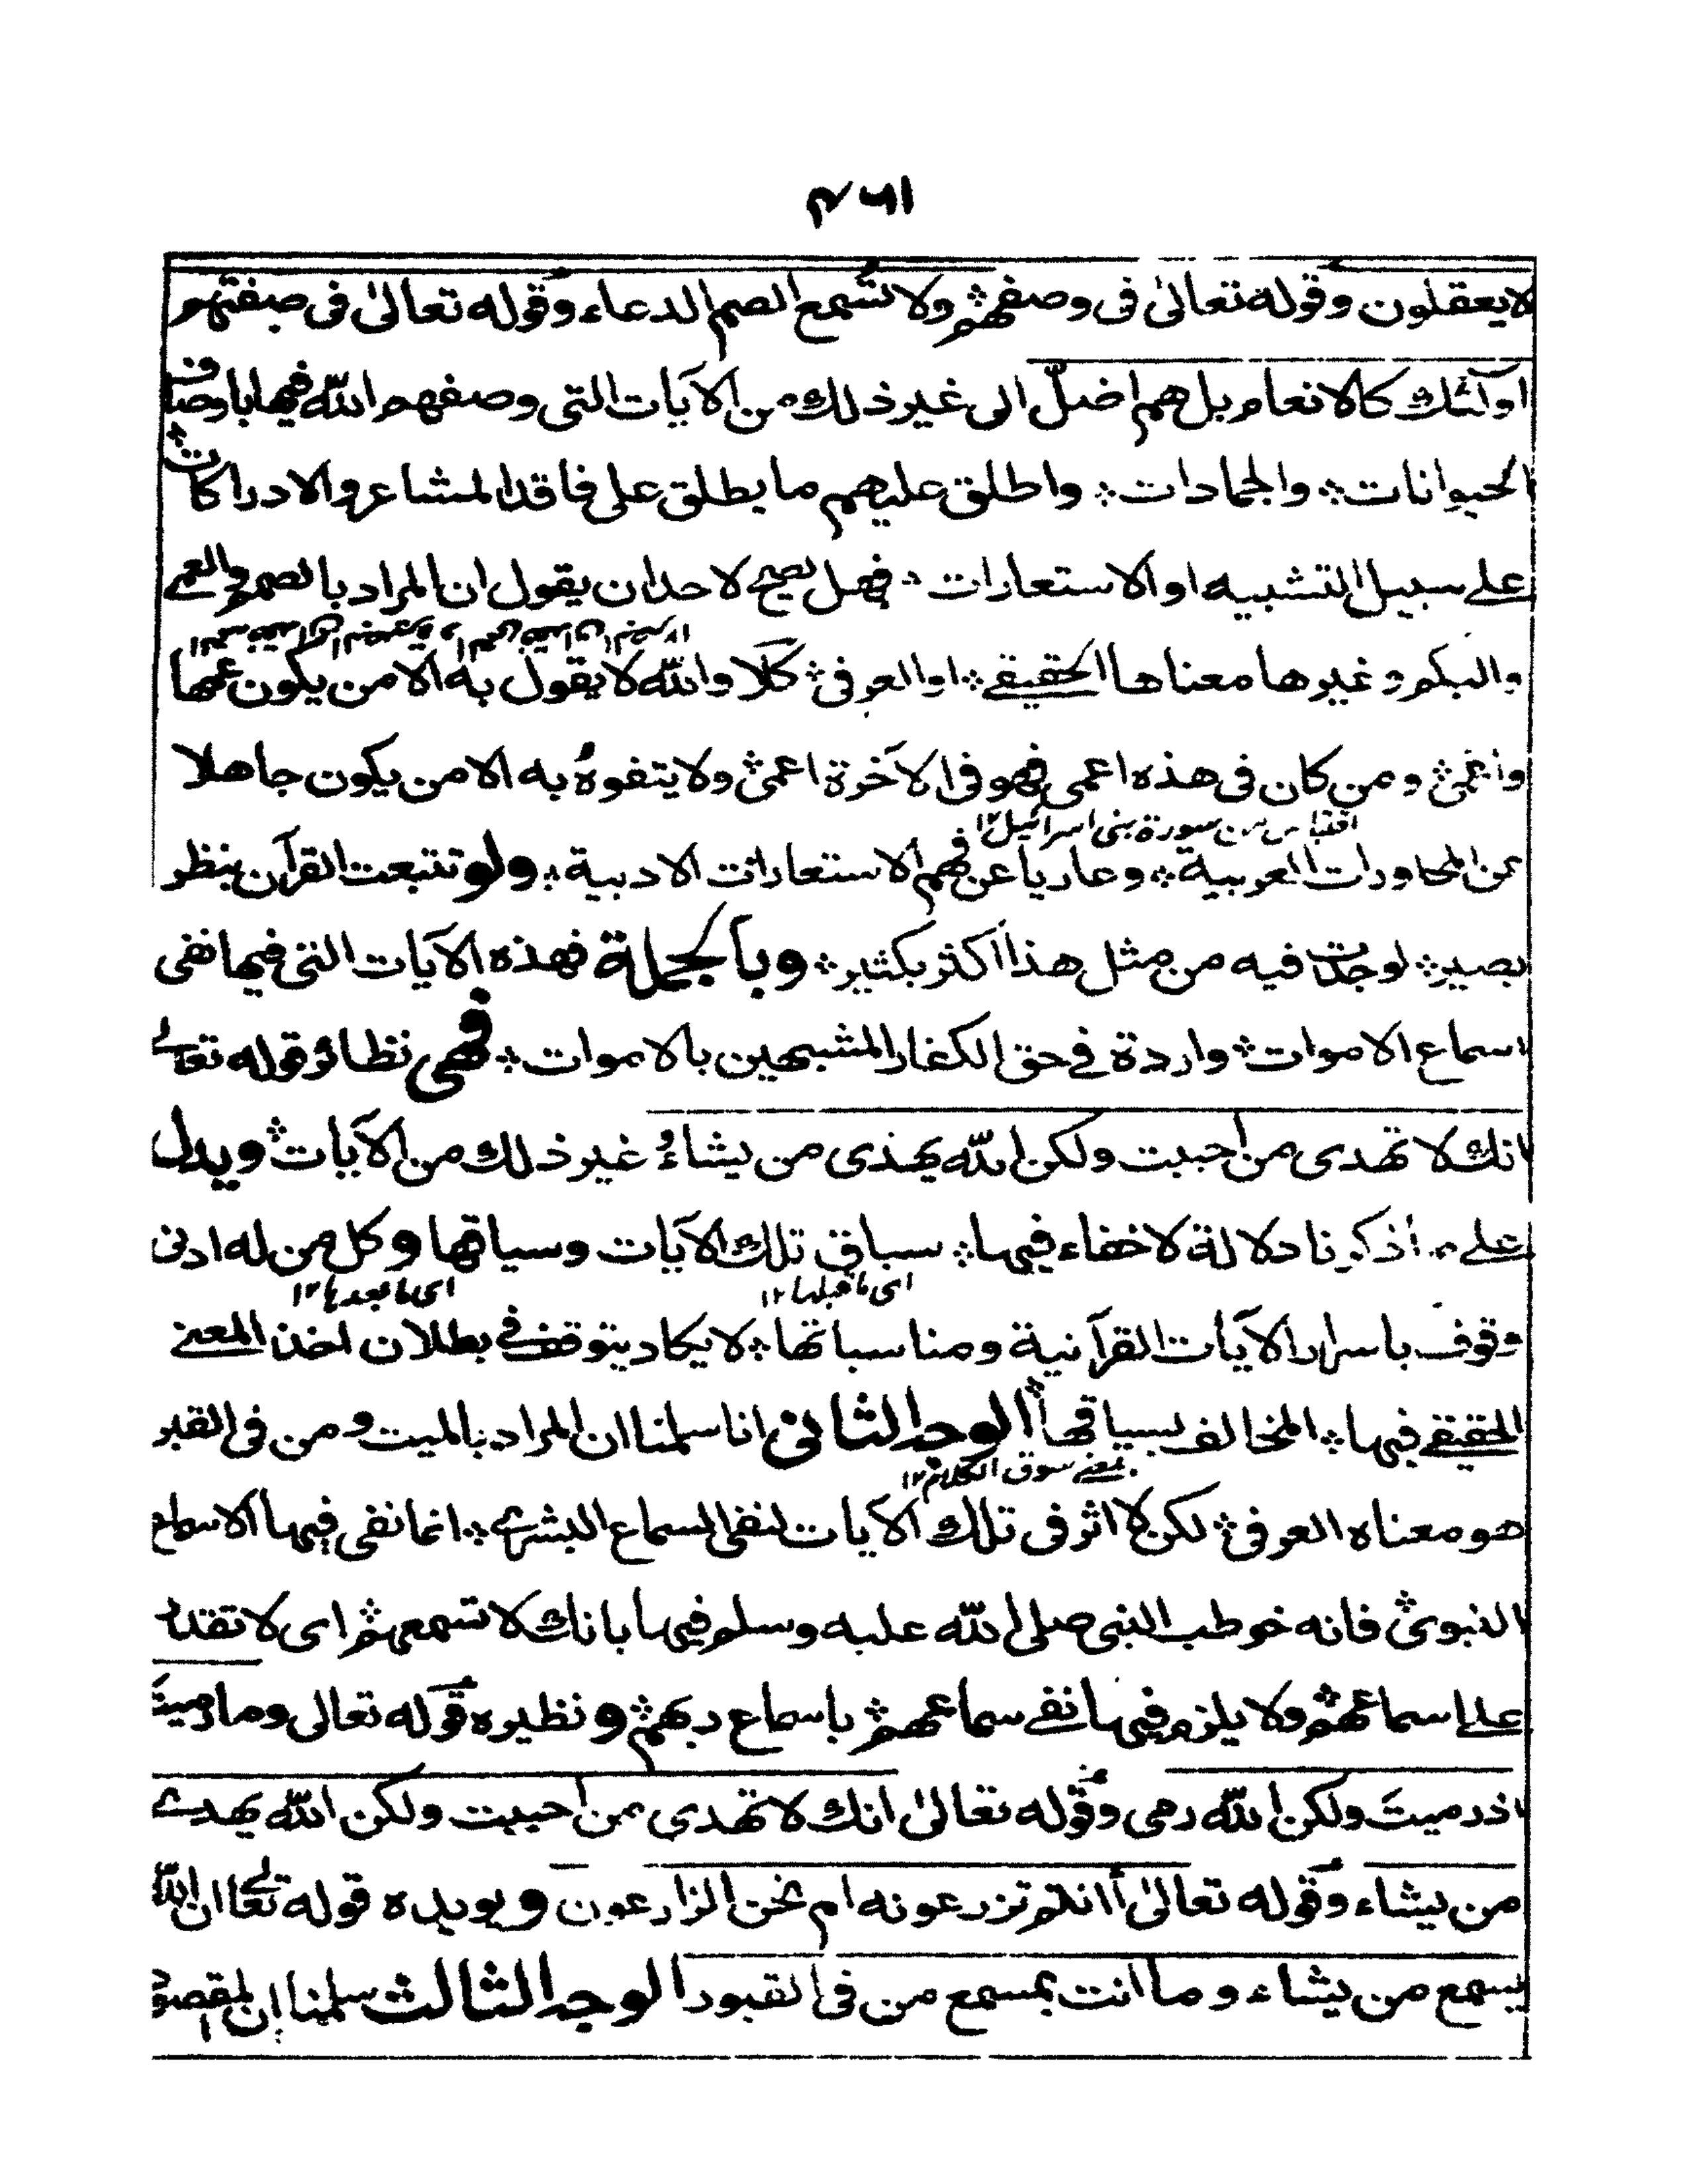 لا يعقلون وقوله تعالىٰ فى وصفهم ۞ ولا تسمع الصم الدعاء وقوله تعالىٰ فى صفتهم
اولٰئك كالانعام بل هم اضلّ الى غير ذلك من الآيات التى وصفهم اللّٰه فيها باوصاف
الحيوانات ۞ والجمادات ۞ واطلق عليهم ما يطلق على فاقد المشاعر والادراكات ۞
على سبيل التشبيه او الاستعارات ۞ فهل يصح لاحد ان يقول ان المراد بالصم والعمى
والبكم وغيرها معناها الحقيقے ۞ او العرفى ۞ كلّا واللّٰه لا يقول به الا من يكون عمها
واعمى ۞ ومن كان فى هذه اعمى فهو فى الآخرة اعمى ۞ ولا يتفوهُ به الا من يكون جاهلا
اقتباس من سورة بنى اسرائيل ١٢
عن المحاورات العربية ۞ وعاريا عن فهم الاستعارات الادبية ۞ ولو تتبعت القرآن بنظر
بصير ۞ لوجدت فيه من مثل هذا اكثر بكثير ۞ وبالجملة فهذه الآيات التى فيها نفى
اسماع الاموات ۞ واردة فے حق الكفار المشبهين بالاموات ۞ فهى نظائر قوله تعالے
انك لا تهدى من احببت ولكن اللّٰه يهدى من يشاءُ غير ذلك من الآيات ۞ ويدل
علے ما ذكرنا دلالة لا خفاء فيها ۞ سباق تلك الآيات وسياقها وكل من له ادنى
اى ما قبلها ١٢ اى ما بعدها ١٢
وقوف باسرار الآيات القرآنية ومناسباتها ۞ لا يكاد يتوقف فے بطلان اخذ المعنے
الحقيقے فيها ۞ المخالف لسياقها ۞ الوجه الثانى انا سلمنا ان المراد بالميت ومن فى القبر
بمعنے سوق الكلام ١٢
هو معناه العرفى ۞ لكن لا اثر فى تلك الآيات لنفى السماع البشرے ۞ انما نفى فيها الاسماع
النبوى ۞ فانه خوطب النبى صلى اللّٰه عليه وسلم فيها بانك لا تسمعهم ۞ اى لا تقدر
علے اسماعهم ۞ ولا يلزم فيها نفے سماعهم ۞ باسماع ربهم ۞ ونظيره قوله تعالى وما رميتَ
اذ رميتَ ولكن اللّٰه رمى وقوله تعالىٰ انك لا تهدى من احببت ولكن اللّٰه يهدے
من يشاء وقوله تعالىٰ أانتم تزرعونه ام نحن الزارعون ويويده قوله تعالے ان اللّٰه
يسمع من يشاء وما انت بمسمع من فى القبور الوجه الثالث سلمنا ان المقصود